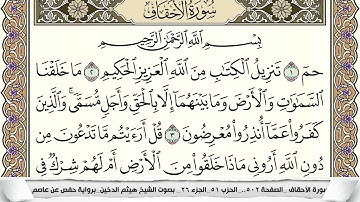 سُورَةُ الأَحْقَافِ
بِسْمِ اللَّهِ الرَّحْمَٰنِ الرَّحِيمِ
حمٓ ١ تَنزِيلُ ٱلْكِتَٰبِ مِنَ ٱللَّهِ ٱلْعَزِيزِ ٱلْحَكِيمِ ٢ مَا خَلَقْنَا
ٱلسَّمَٰوَٰتِ وَٱلْأَرْضَ وَمَا بَيْنَهُمَآ إِلَّا بِٱلْحَقِّ وَأَجَلٍ مُّسَمًّى ۚ وَٱلَّذِينَ
كَفَرُوا۟ عَمَّآ أُنذِرُوا۟ مُعْرِضُونَ ٣ قُلْ أَرَءَيْتُم مَّا تَدْعُونَ مِن
دُونِ ٱللَّهِ أَرُونِى مَاذَا خَلَقُوا۟ مِنَ ٱلْأَرْضِ أَمْ لَهُمْ شِرْكٌ فِى
سورة الأحقاف .. الصفحة ٥٠٢ .. الحزب ٥١ .. الجزء ٢٦ .. بصوت الشيخ هيثم الدخين .. برواية حفص عن عاصم